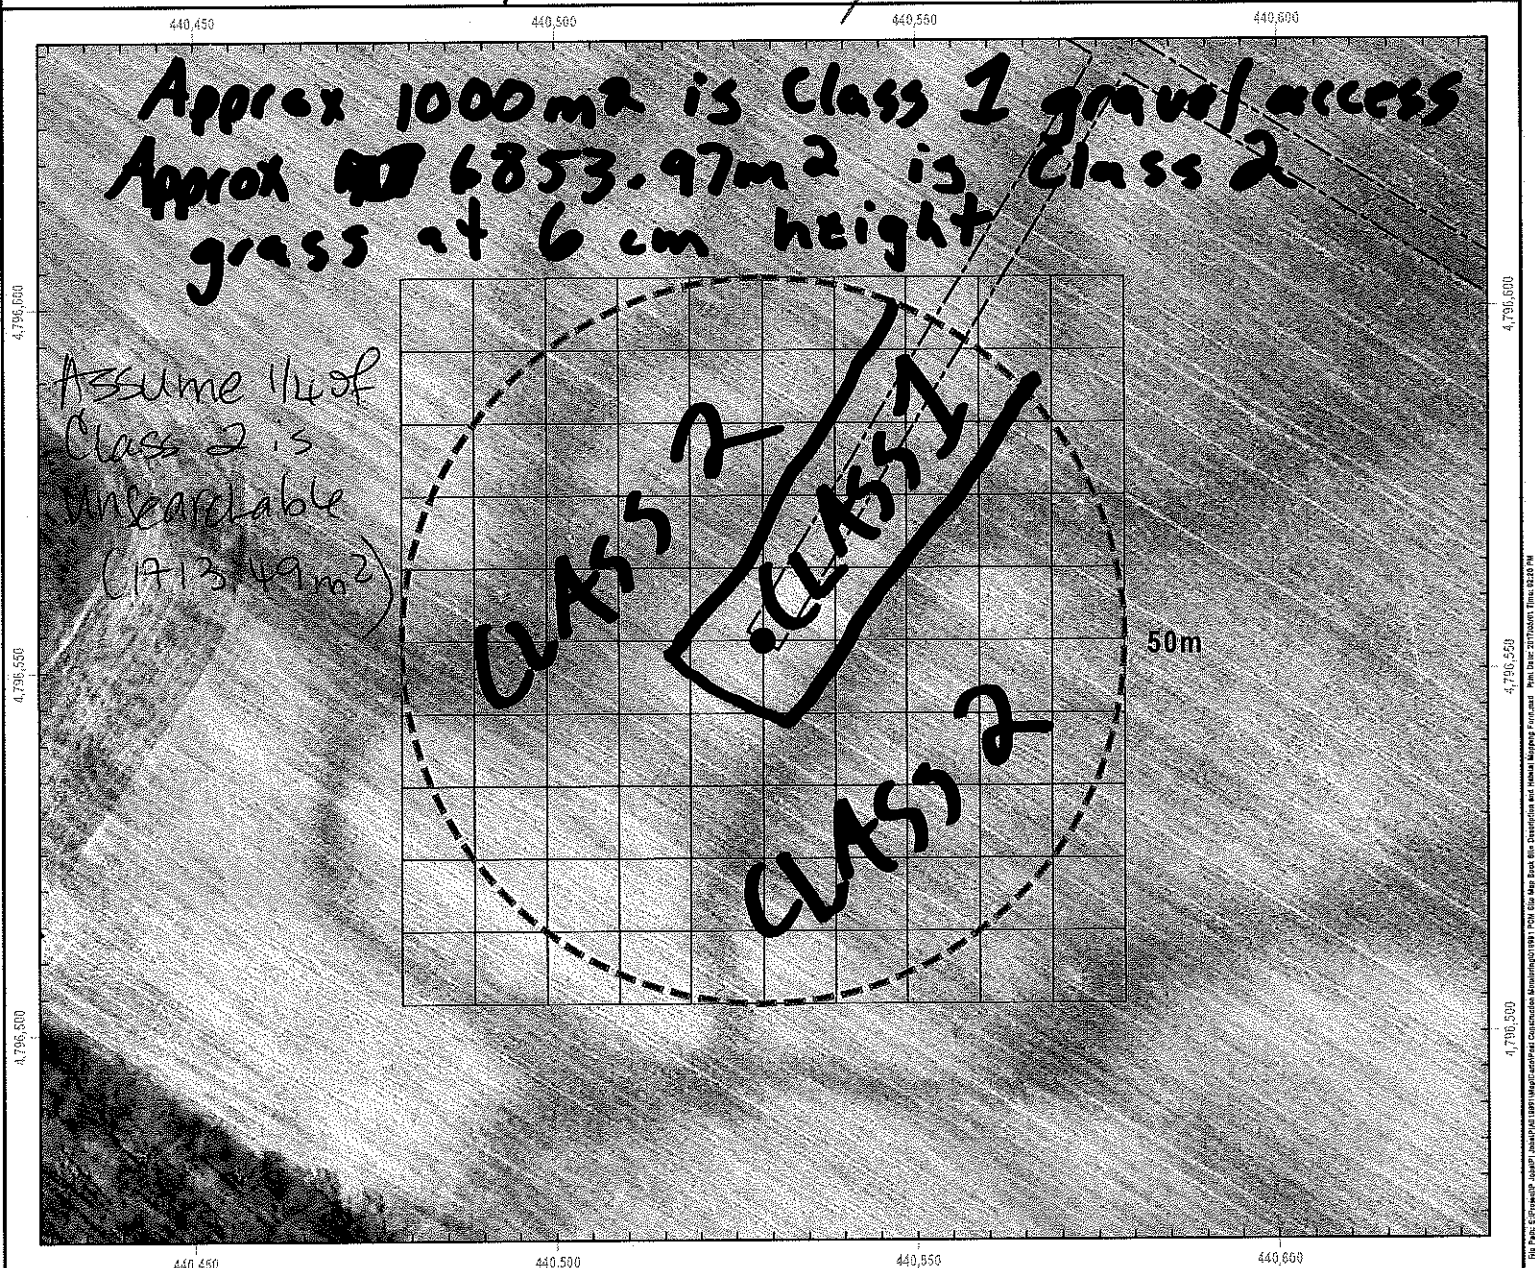 440,450 440,500 440,550 440,600
Approx 1000m2 is Class 1 gravel access
Approx 6853.97m2 is Class 2
grass at 6 cm height
4,796,600 4,796,600
Assume 1/4 of
Class 2 is
unsearchable
(1713.49m2)
CLASS 2
CLASS 1
50m
4,796,550 4,796,550
CLASS 2
4,796,500 4,796,500
440,450 440,500 440,550 440,600